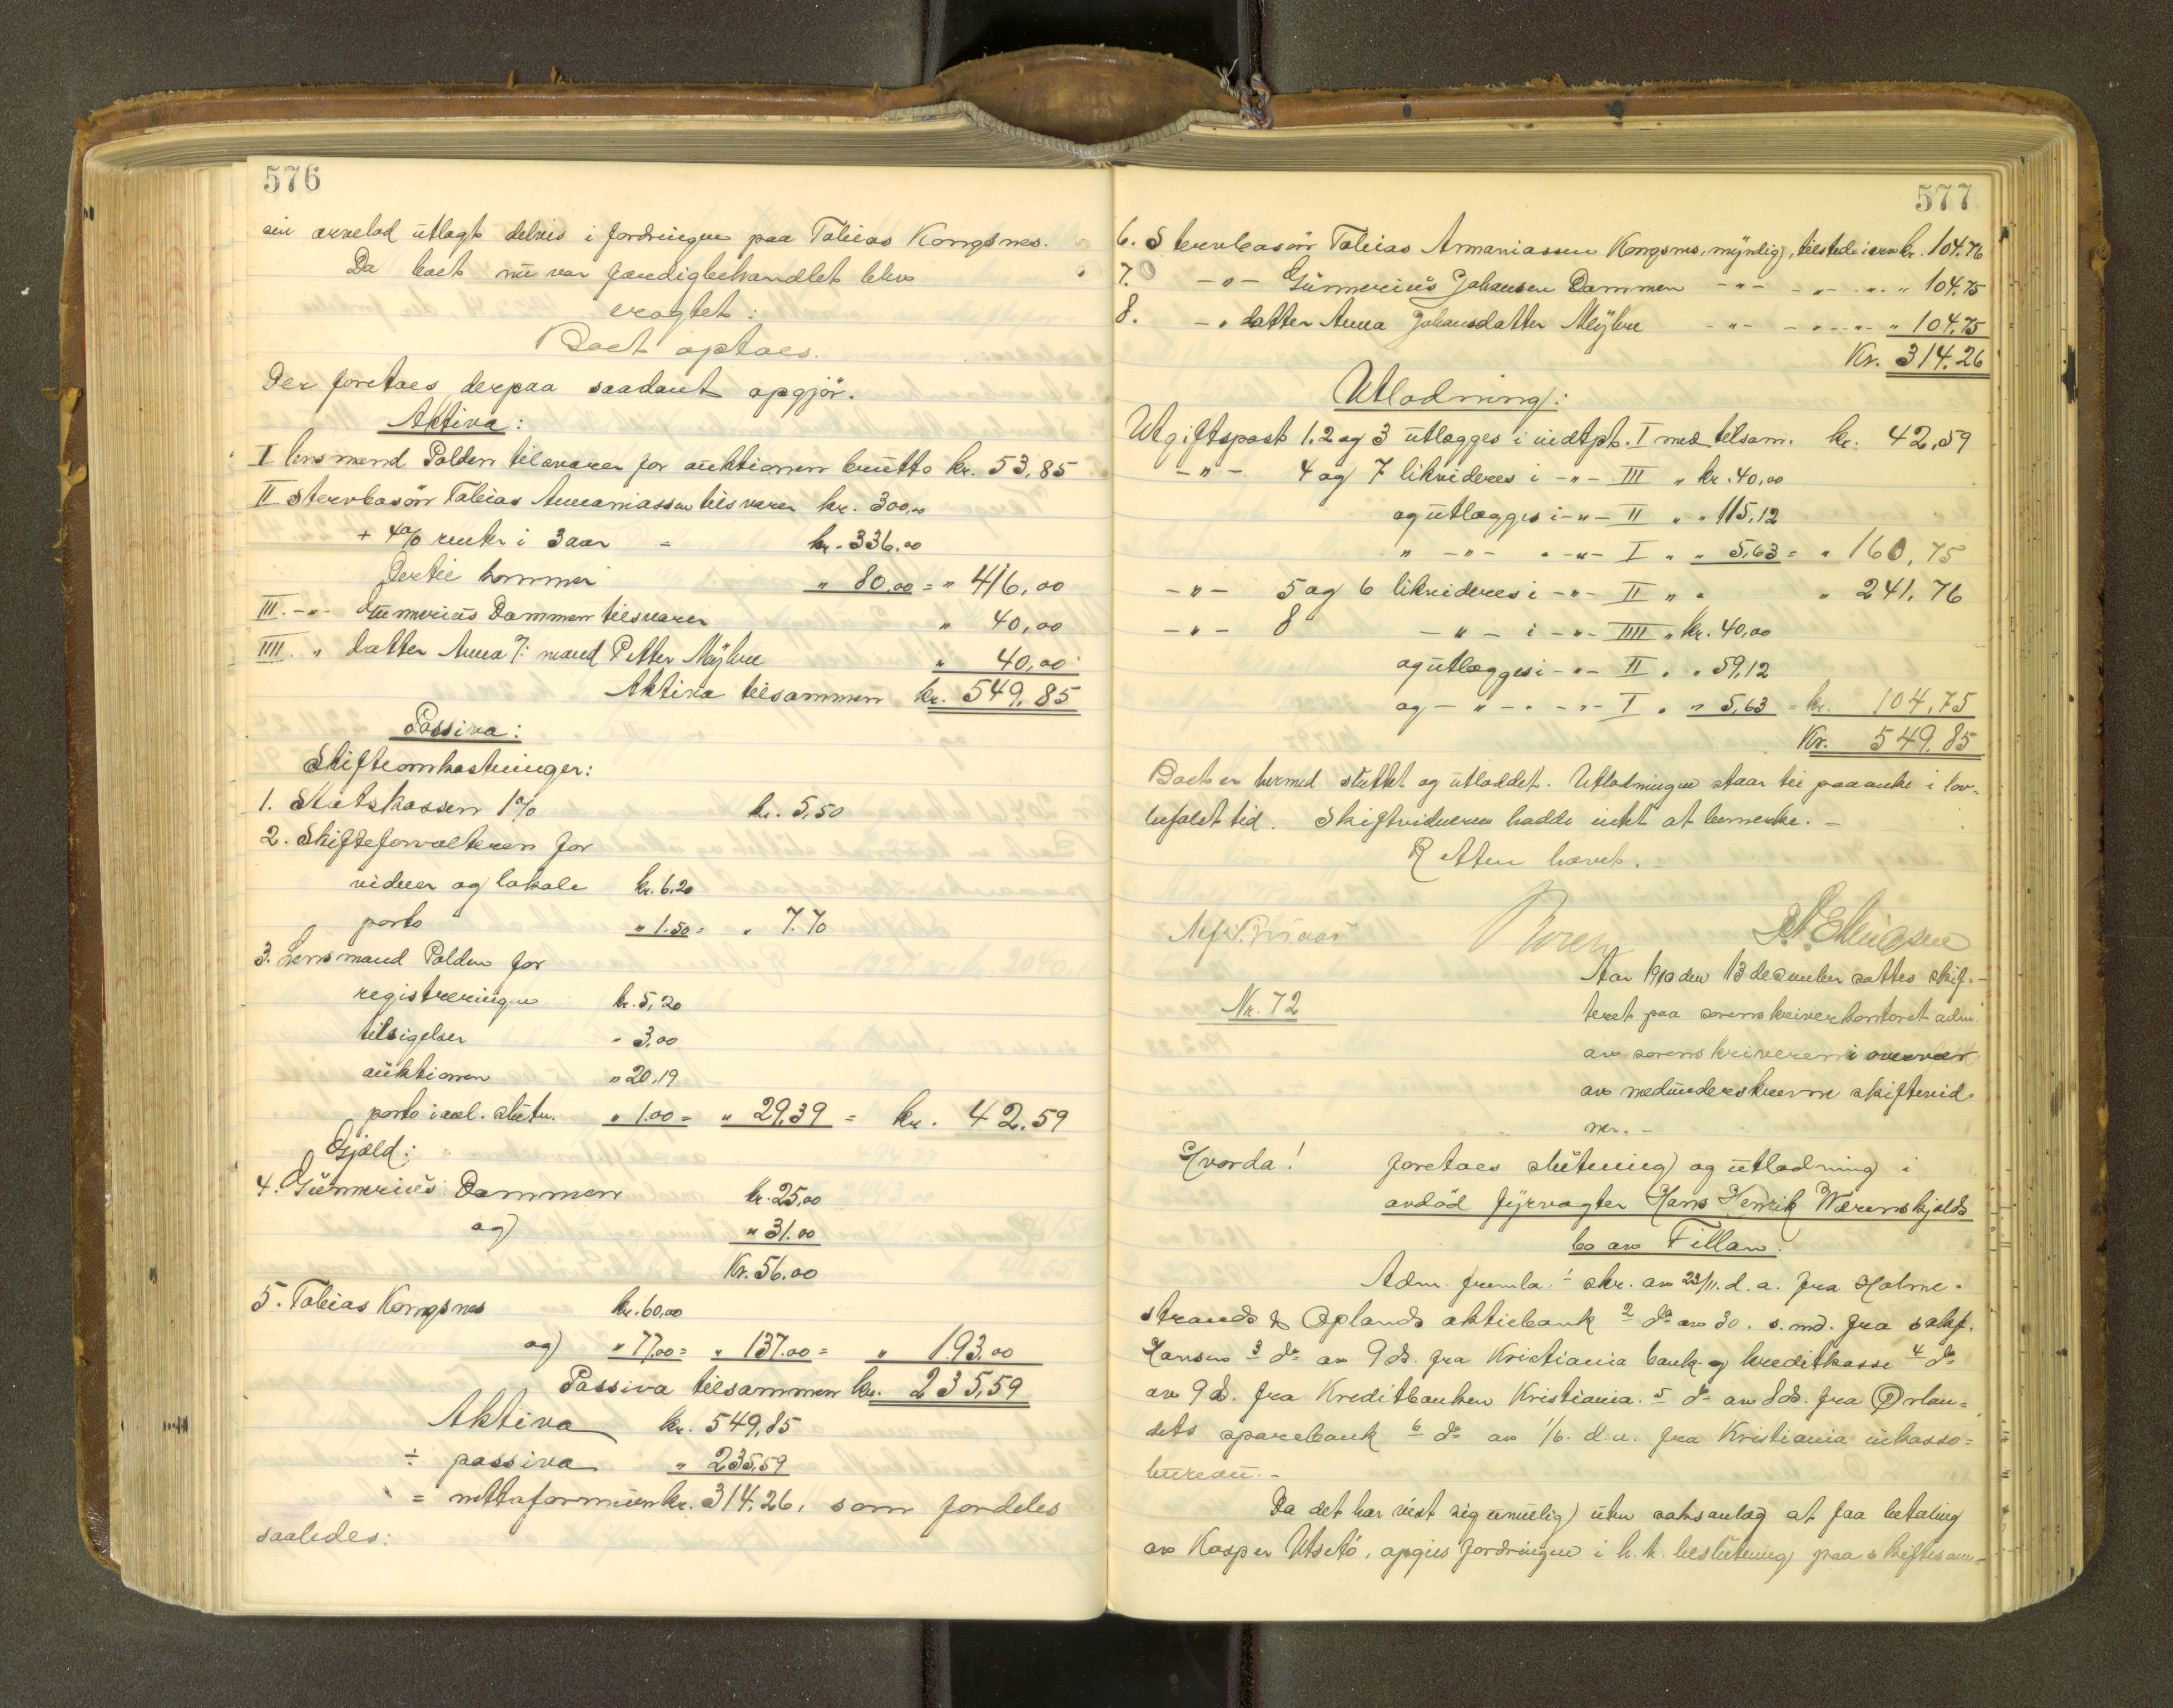 576
sin arvelod utlagt delvis i fordringen paa Tobias Kongsnes.
Da boet nu var færdigbehandlet blev
eragtet:
Boet optaes.
Der foretaes derpaa saadant opgjör.
Aktiva:
I lensmand Polden tilsvarer for auktionen brutto kr. 53,85
II stervbosön Tobias Annaniassen tilsvarer kr. 300,00
+ 4% renter i 3 aar = kr. 336.00
Dertil kommer " 80.00 = " 416,00
III. -"- Gunnerius Dammen tilsvarer " 40,00
IIII. " datter Anna /: mand Petter Myhre " 40,00
Aktiva tilsammen kr. 549,85
Passiva:
Skifteomkostninger:
1. Statskassen 1% kr. 5,50
2. Skifteforvalteren for
vidner og lokale kr. 6.20
porto " 1.50 = " 7.70
3. Lensmand Polden for
registreringen kr. 5,20
tilsigelser " 3,00
auktionen " 20,19
porto incl. slutn. " 1.00 = " 29,39 = kr. 42.59
Gjæld:
4. Gunnerius Dammen kr. 25,00
og " 31.00
Kr. 56.00
5. Tobias Kongsnes kr. 60,00
og " 77.00 = " 137.00 = " 193,00
Passiva tilsammen kr. 235,59
Aktiva kr. 549,85
÷ passiva " 235,59
= nettoformuen kr. 314,26, som fordeles
saaledes:
577
6. Stervbosön Tobias Annaniassen Kongsnes, myndig, tilstede i arv kr. 104.76
7. -"- Gunnerius Johansen Dammen -"- -"- " " 104.75
8. - " datter Anna Johansdatter Myhre -"- - " - " - " 104.75
Kr. 314.26
Utlodning:
Utgiftspost 1. 2 og 3 utlægges i indtpt. I med tilsam. kr. 42,59
-"- 4 og 7 likvideres i -"- III " kr. 40,00
og utlægges i -"- II " " 115,12
" -"- " -"- I " " 5,63 = " 160,75
-"- 5 og 6 likvideres i -"- II " " " 241,76
-"- 8 -"- i -"- IIII " kr. 40,00
og utlægges i -"- II " " 59,12
og -"- " -"- I " " 5,63 = kr. 104,75
Kr. 549,85
Boet er hermed sluttet og utloddet. Utlodningen staar til paaanke i lov-
befalet tid. Skiftevidnerne hadde intet at bemerke. -
Retten hævet.
Nr. 72
Aar 1910 den 13 december sattes skif-
teret paa sorenskriverkontoret adm.
av sorenskriveren i overvær
av medunderskrevne skiftevid-
ner. -
Hvorda! foretaes slutning og utlodning i
avdöd fyrvogter Hans Henrik Wærenskjolds
bo av Fillan.
Adm. fremla. 1 skr. av 23/11. d. a. fra Holme-
strands & Oplands aktiebank 2 do av 30. s. md. fra sakf.
Hansen 3 do av 9 ds. fra Kristiania bank- og kreditkasse 4 do
av 9 ds. fra Kreditbanken Kristiania. 5 do av 8 ds. fra Ørlan-
dets sparebank 6 do av 1/6. d. a. fra Kristiania inkasso-
bureau. -
Da det har vist sig umulig uten saksanlæg at faa betaling
av Kasper Utsetö, opgives fordringen i h. t. beslutning paa skiftesam-